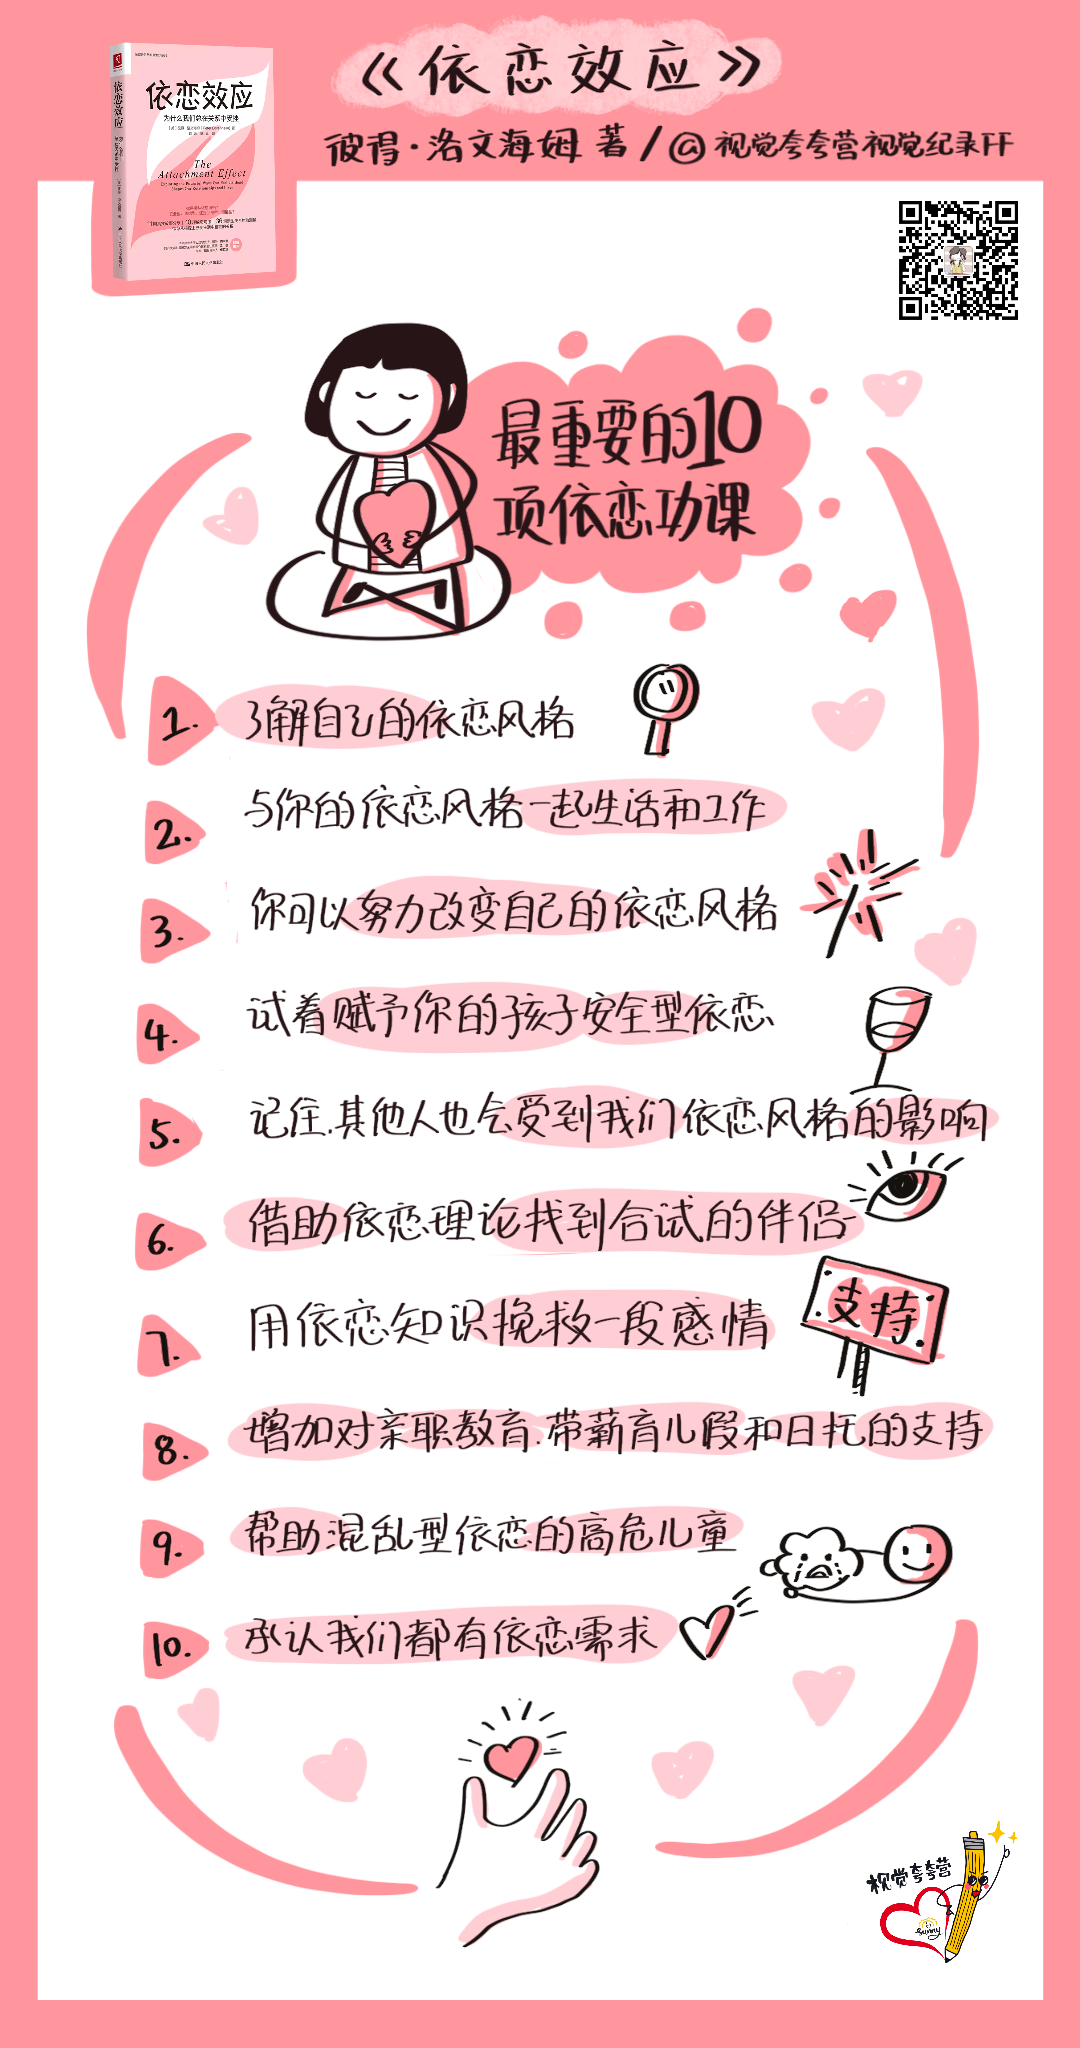 《依恋效应》
彼得·洛文海姆 著/@视觉夸夸营视觉纪录FF
依恋效应
依恋效应
为什么我们总在关系中受挫
The
Attachment Effect
最重要的10
项依恋功课
1. 了解自己的依恋风格
2. 与你的依恋风格一起生活和工作
3. 你可以努力改变自己的依恋风格
4. 试着赋予你的孩子安全型依恋
5. 记住.其他人也会受到我们依恋风格的影响
6. 借助依恋理论找到合试的伴侣
7. 用依恋知识挽救一段感情
支持
8. 增加对亲职教育.带薪育儿假和日托的支持
9. 帮助混乱型依恋的高危儿童
10. 承认我们都有依恋需求
视觉夸夸营
Sunny